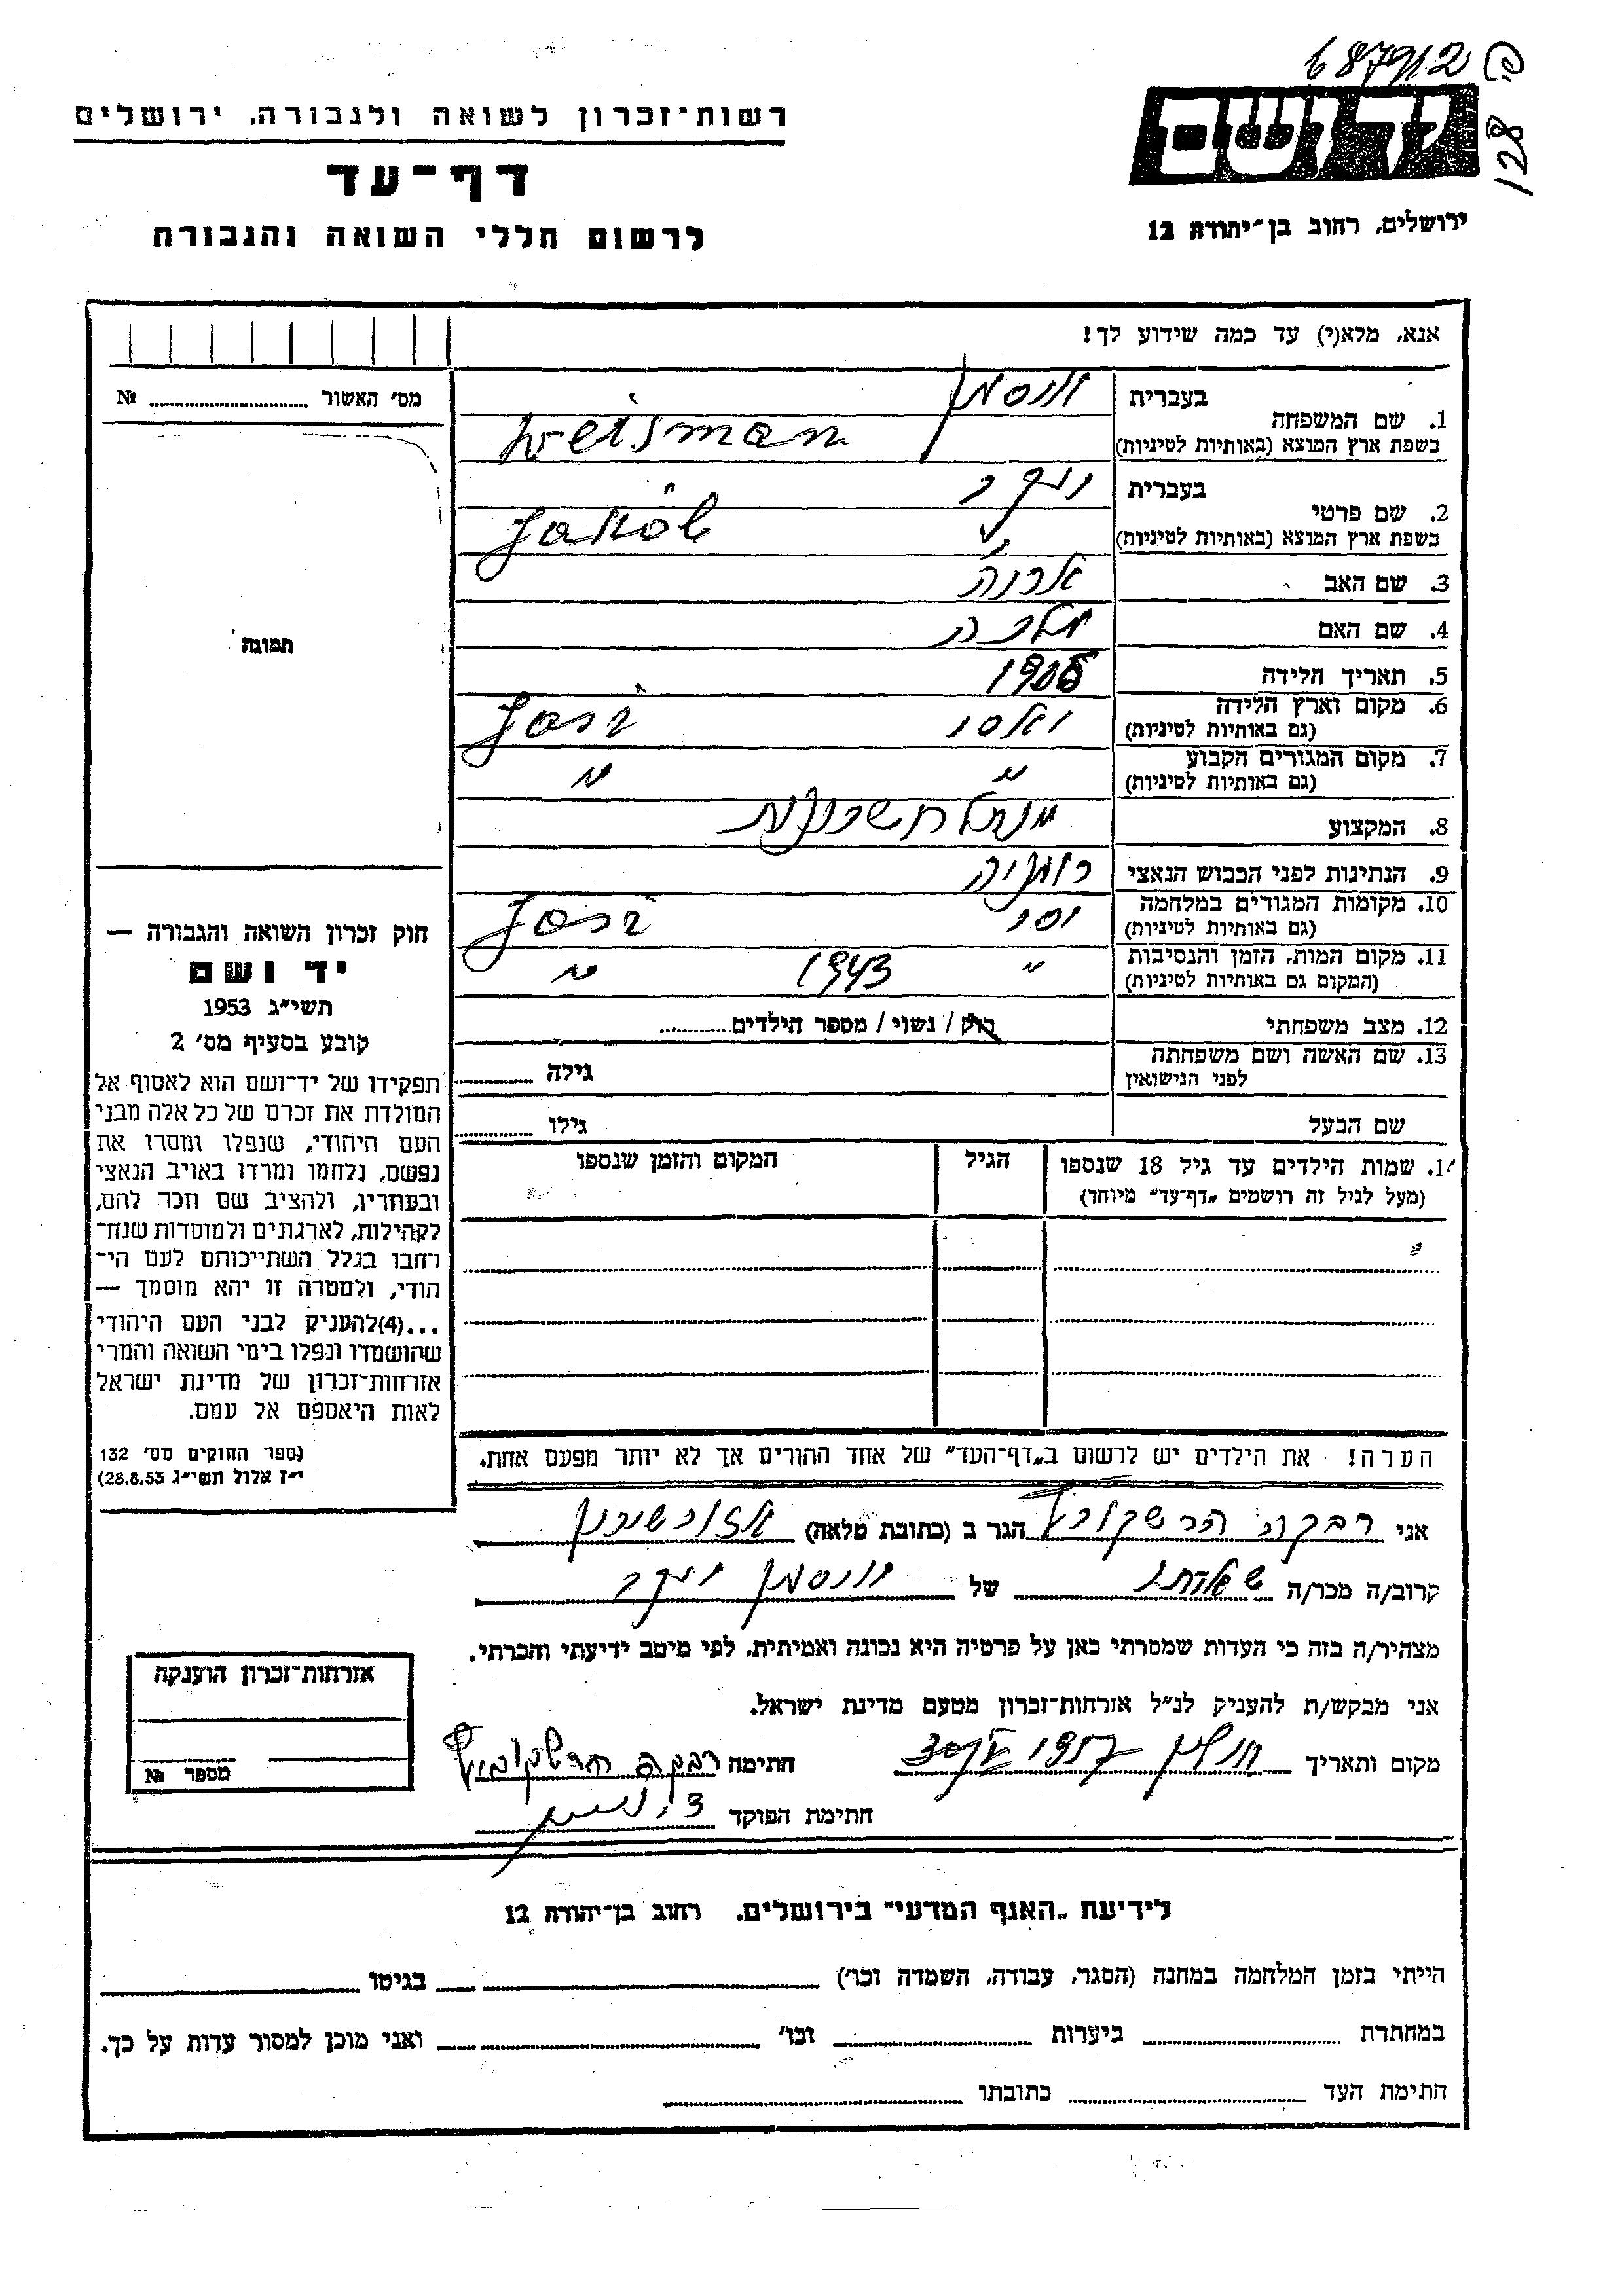 687912
128
רשות־זכרון לשואה ולגבורה, ירושלים
דף־עד
לרשום חללי השואה והגבורה
יד ושם
ירושלים, רחוב בן־יהודה 12
אנא, מלא(י) עד כמה שידוע לך!
מס׳ האשור № 
1. שם המשפחה
בעברית ויסמן
בשפת ארץ המוצא (באותיות לטיניות) Weisman
2. שם פרטי
בעברית יעקב
בשפת ארץ המוצא (באותיות לטיניות) Jakob
3. שם האב
4. שם האם מלכה
5. תאריך הלידה
6. מקום וארץ הלידה
(גם באותיות לטיניות) Jasi
7. מקום המגורים הקבוע
(גם באותיות לטיניות) " "
8. המקצוע מנהל חשבונות
9. הנתינות לפני הכבוש הנאצי רומניה
10. מקומות המגורים במלחמה
(גם באותיות לטיניות) יסי Jasi
11. מקום המות, הזמן והנסיבות
(המקום גם באותיות לטיניות) " 1943 "
12. מצב משפחתי רוק / נשוי / מספר הילדים
13. שם האשה ושם משפחתה
לפני הנישואין גילה
שם הבעל גילו
14. שמות הילדים עד גיל 18 שנספו
(מעל לגיל זה רושמים „דף־עד” מיוחד)
הגיל
המקום והזמן שנספו
הערה! את הילדים יש לרשום ב„דף־העד” של אחד ההורים אך לא יותר מפעם אחת.
תמונה
חוק זכרון השואה והגבורה —
יד ושם
תשי״ג 1953
קובע בסעיף מס׳ 2
תפקידו של יד־ושם הוא לאסוף אל
המולדת את זכרם של כל אלה מבני
העם היהודי, שנפלו ומסרו את
נפשם, נלחמו ומרדו באויב הנאצי
ובעוזריו, ולהציב שם וזכר להם,
לקהילות, לארגונים ולמוסדות שנח־
רחבו בגלל השתייכותם לעם הי־
הודי, ולמטרה זו יהא מוסמך —
...(4)להעניק לבני העם היהודי
שהושמדו ונפלו בימי השואה והמרי
אזרחות־זכרון של מדינת ישראל
לאות היאספם אל עמם.
(ספר החוקים מס׳ 132
י״ז אלול תשי״ג 28.8.53)
אני רבקה הרשקוביץ הגר ב (כתובת מלאה)
קרוב/ה מכר/ה של ויסמן יעקב
מצהיר/ה בזה כי העדות שמסרתי כאן על פרטיה היא נכונה ואמיתית, לפי מיטב ידיעתי והכרתי.
אני מבקש/ת להעניק לנ״ל אזרחות־זכרון מטעם מדינת ישראל.
מקום ותאריך
חתימה רבקה הרשקוביץ
חתימת הפוקד
אזרחות־זכרון הוענקה
מספר №
לידיעת „האגף המדעי” בירושלים. רחוב בן־יהודה 12
הייתי בזמן המלחמה במחנה (הסגר, עבודה, השמדה וכו׳) בגיטו
במחתרת ביערות וכו׳ ואני מוכן למסור עדות על כך.
חתימת העד כתובתו